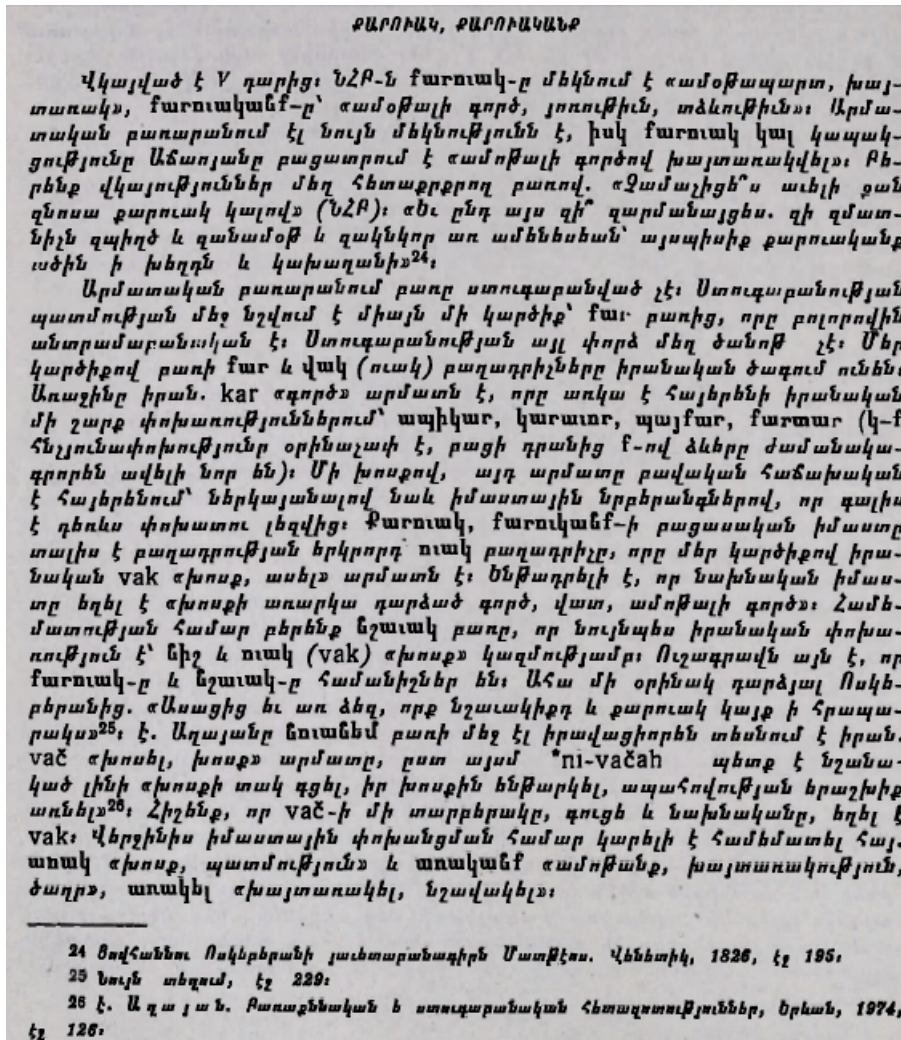 ՔԱՐՈՒԱԿ, ՔԱՐՈՒԱԿԱՆՔ
Վկայված է V դարից։ ՆՀԲ-ն քարուակ-ը մեկնում է «ամօթապարտ, խայ-
տառակ», քարուականք-ը՝ «ամօթալի գործ, յոռութիւն, տձևութիւն»։ Արմա-
տական բառարանում էլ նույն մեկնությունն է, իսկ քարուակ կալ կապակ-
ցությունը Աճառյանը բացատրում է «ամոթալի գործով խայտառակվել»։ Բե-
րենք վկայություններ մեզ հետաքրքրող բառով. «Չամաչիցե՞ս աւելի քան
զնոսա քարուակ կալով» (ՆՀԲ)։ «Եւ ընդ այս զի՞ զարմանայցես. զի զմատ-
նիչն զպիղծ և զանամօթ և զակնկոր առ ամենեսեան՝ այսպիսիք քարուականք
ածին ի խեղդն և կախաղանի»24։
Արմատական բառարանում բառը ստուգաբանված չէ։ Ստուգաբանության
պատմության մեջ նշվում է միայն մի կարծիք՝ քար բառից, որը բոլորովին
անտրամաբանական է։ Ստուգաբանության այլ փորձ մեզ ծանոթ չէ։ Մեր
կարծիքով բառի քար և վակ (ուակ) բաղադրիչները իրանական ծագում ունեն։
Առաջինը իրան. kar «գործ» արմատն է, որը առկա է հայերենի իրանական
մի շարք փոխառություններում՝ ապիկար, կարաւոր, պայքար, քարտար (կ-ք
հնչյունափոխությունը օրինաչափ է, բացի դրանից ք-ով ձևերը ժամանակա-
գրորեն ավելի նոր են)։ Մի խոսքով, այդ արմատը բավական հաճախական
է հայերենում՝ ներկայանալով նաև իմաստային նրբերանգներով, որ գալիս
է դեռևս փոխատու լեզվից։ Քարուակ, քարուկանք-ի բացասական իմաստը
տալիս է բաղադրության երկրորդ ուակ բաղադրիչը, որը մեր կարծիքով իրա-
նական vak «խոսք, ասել» արմատն է։ Ենթադրելի է, որ նախնական իմաս-
տը եղել է «խոսքի առարկա դարձած գործ, վատ, ամոթալի գործ»։ Համե-
մատության համար բերենք նշաւակ բառը, որ նույնպես իրանական փոխա-
ռություն է՝ նիշ և ուակ (vak) «խոսք» կազմությամբ։ Ուշագրավն այն է, որ
քարուակ-ը և նշաւակ-ը համանիշներ են։ Ահա մի օրինակ դարձյալ Ոսկե-
բերանից. «Ասացից եւ առ ձեզ, որք նշաւակիքդ և քարուակ կայք ի հրապա-
րակս»25։ Է. Աղայանը նուաճեմ բառի մեջ էլ իրավացիորեն տեսնում է իրան.
vač «խոսել, խոսք» արմատը, ըստ այսմ *ni-vačah պետք է նշանա-
կած լինի «խոսքի տակ գցել, իր խոսքին ենթարկել, ապահովության երաշխիք
առնել»26։ Հիշենք, որ vač-ի մի տարբերակը, գուցե և նախնականը, եղել է
vak։ Վերջինիս իմաստային փոխանցման համար կարելի է համեմատել հայ.
առակ «խոսք, պատմություն» և առականք «ամոթանք, խայտառակություն,
ծաղր», առակել «խայտառակել, նշավակել»։
24 Յովհաննու Ոսկեբերանի յաւետարանագիրն Մատթէոս. Վենետիկ, 1826, էջ 195։
25 Նույն տեղում, էջ 229։
26 Է. Աղայան. Բառաքննական և ստուգաբանական հետազոտություններ, Երևան, 1974,
էջ 126։